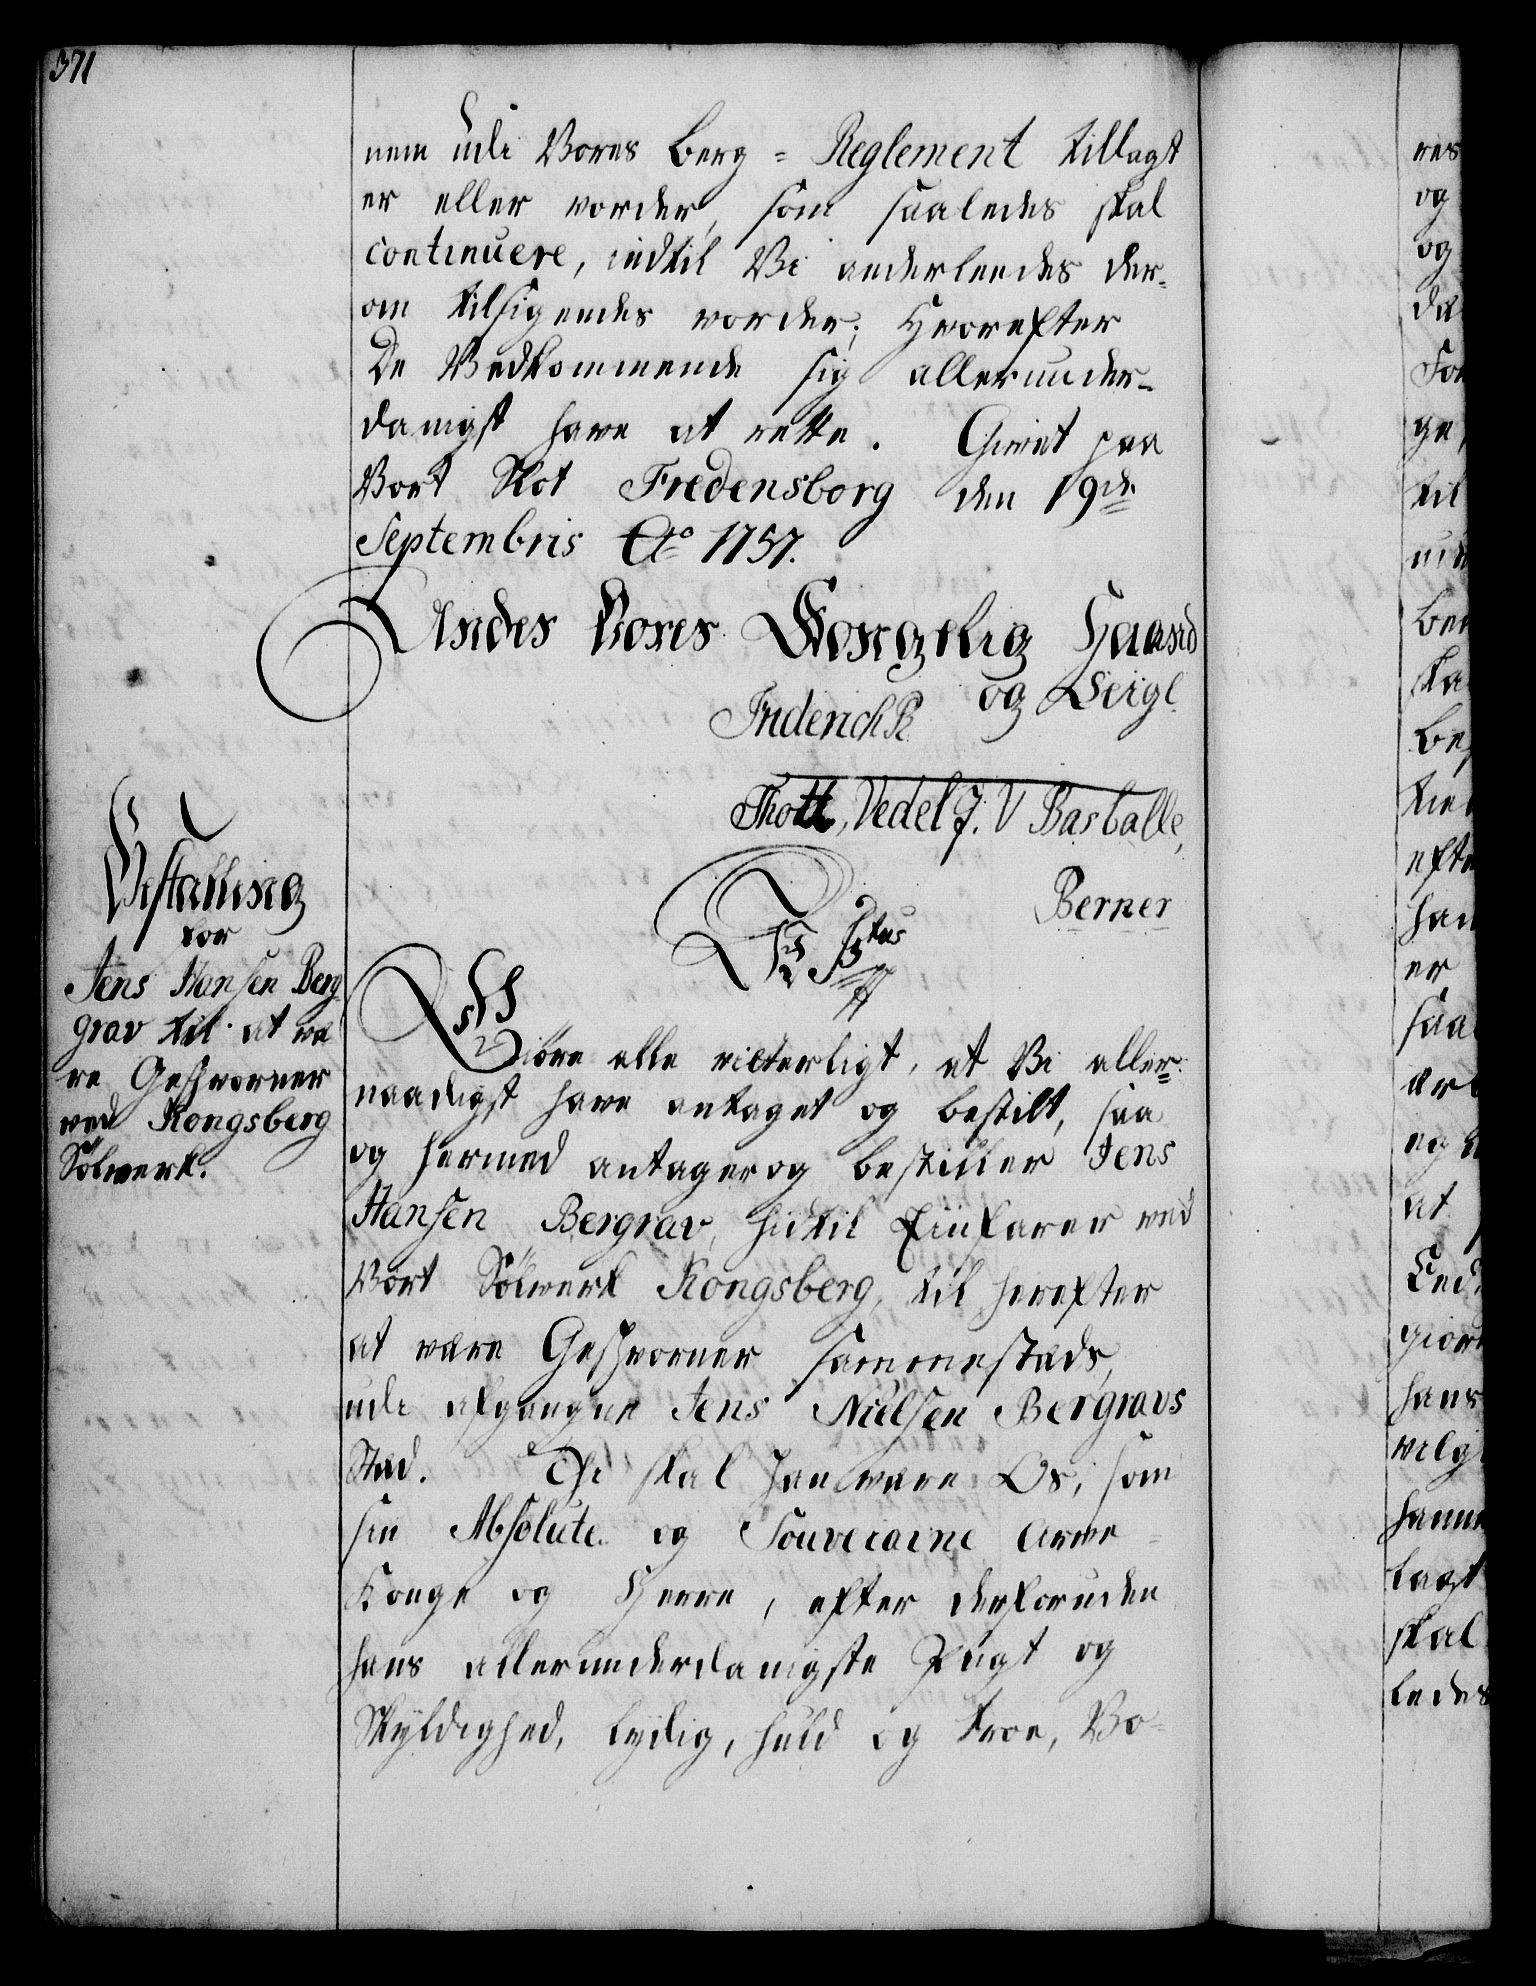 371
nem udi Vores Berg-Reglement tillagt
er eller vorder, som saaledes skal
continuere, indtil Vi anderleedes der-
om tilsigendes vorder; Hvorefter
De Vedkommende sig allerunder-
danigst have at rette. Givet paa
Vort Slot Fredensborg den 19de
Septembris Ao 1757.
Under Vores Kongelig Haand
og Seigl.
Friderich R
Thott, Vedel J. V Basballe,
Berner
Bestalling
for
Jens Hansen Berg
grav til at væ
re Geschworner
ved Kongsberg
Sölverk.
Giöre alle vitterligt, at Vi aller-
naadigst have antaget og bestilt, saa
og hermed antager og bestiller Jens
Hansen Bergrav, hidtil Einfarer ved
Vort Sölverk Kongsberg, til herefter
at være Geschworner sammestæds,
udi afgangne Jens Nielsen Bergravs
Stæd. Thi skal han være Os, som
sin Absolute og Souveraine Arve-
Konge og Herre, efter derforuden
hans allerunderdanigste Pligt og
Skyldighed, lydig, huld og troe, Vo-
res
og
og
til
ska
efte
han
er
saa
at
giort
hans
hanne
lagt
skal
ledes